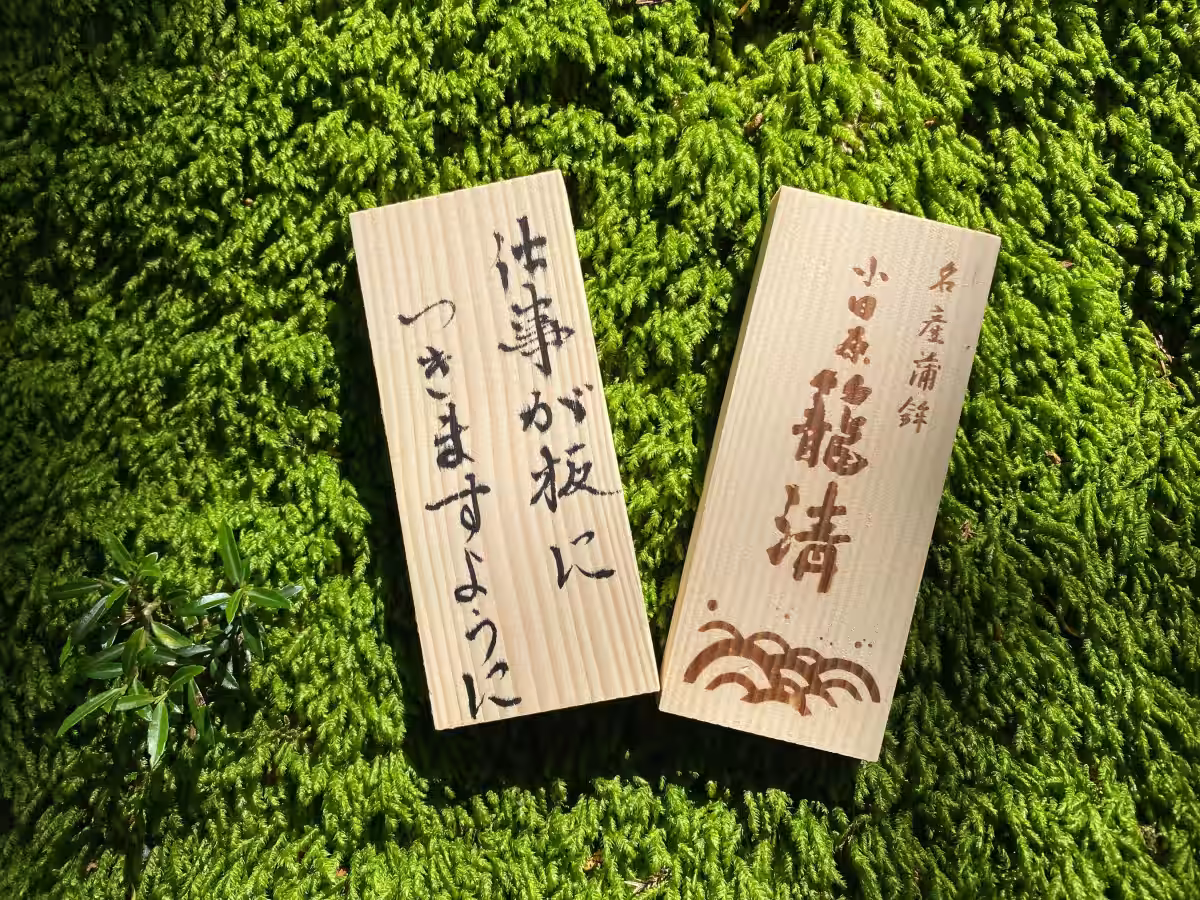 仕事が板に
つきますように
名産蒲鉾
小田原籠清